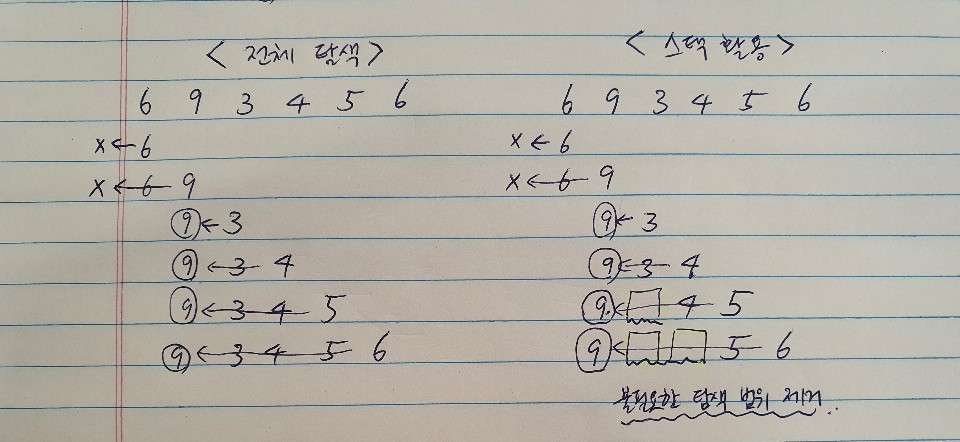 < 전체 탐색 >
6 9 3 4 5 6
x ← 6
x ← 6 9
9 ← 3
9 ← 3 4
9 ← 3 4 5
9 ← 3 4 5 6
< 스택 활용 >
6 9 3 4 5 6
x ← 6
x ← 6 9
9 ← 3
9 ← 3 4
9 ← □ 4 5
9 ← □ □ 5 6
불필요한 탐색 범위 제거..